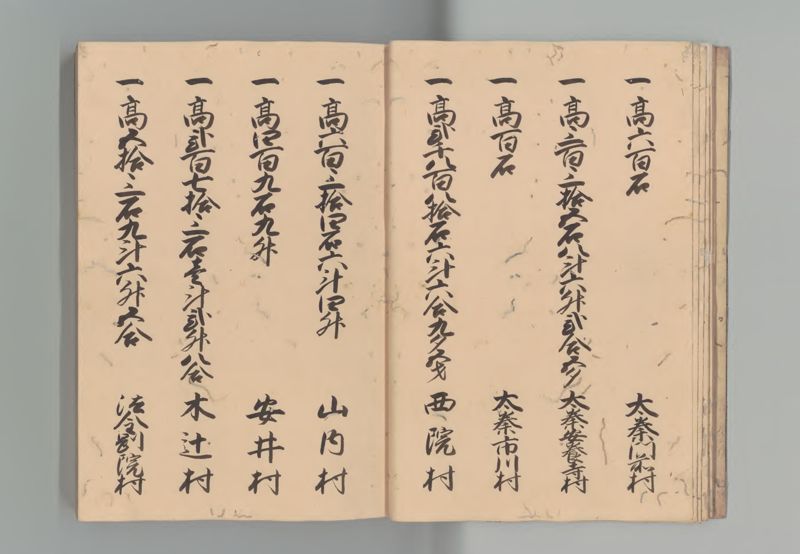 一高六百石 太秦門前村
一高三百三拾五石八斗六升弐合五夕 太秦安養寺村
一高百石 太秦市川村
一高弐千八百八拾石六斗六合九夕五才 西院村
一高六百三拾四石六斗四升 山内村
一高四百九石九升 安井村
一高弐百七拾三石壱斗弐升八合 木辻村
一高五拾三石九斗六升五合 法金剛院村